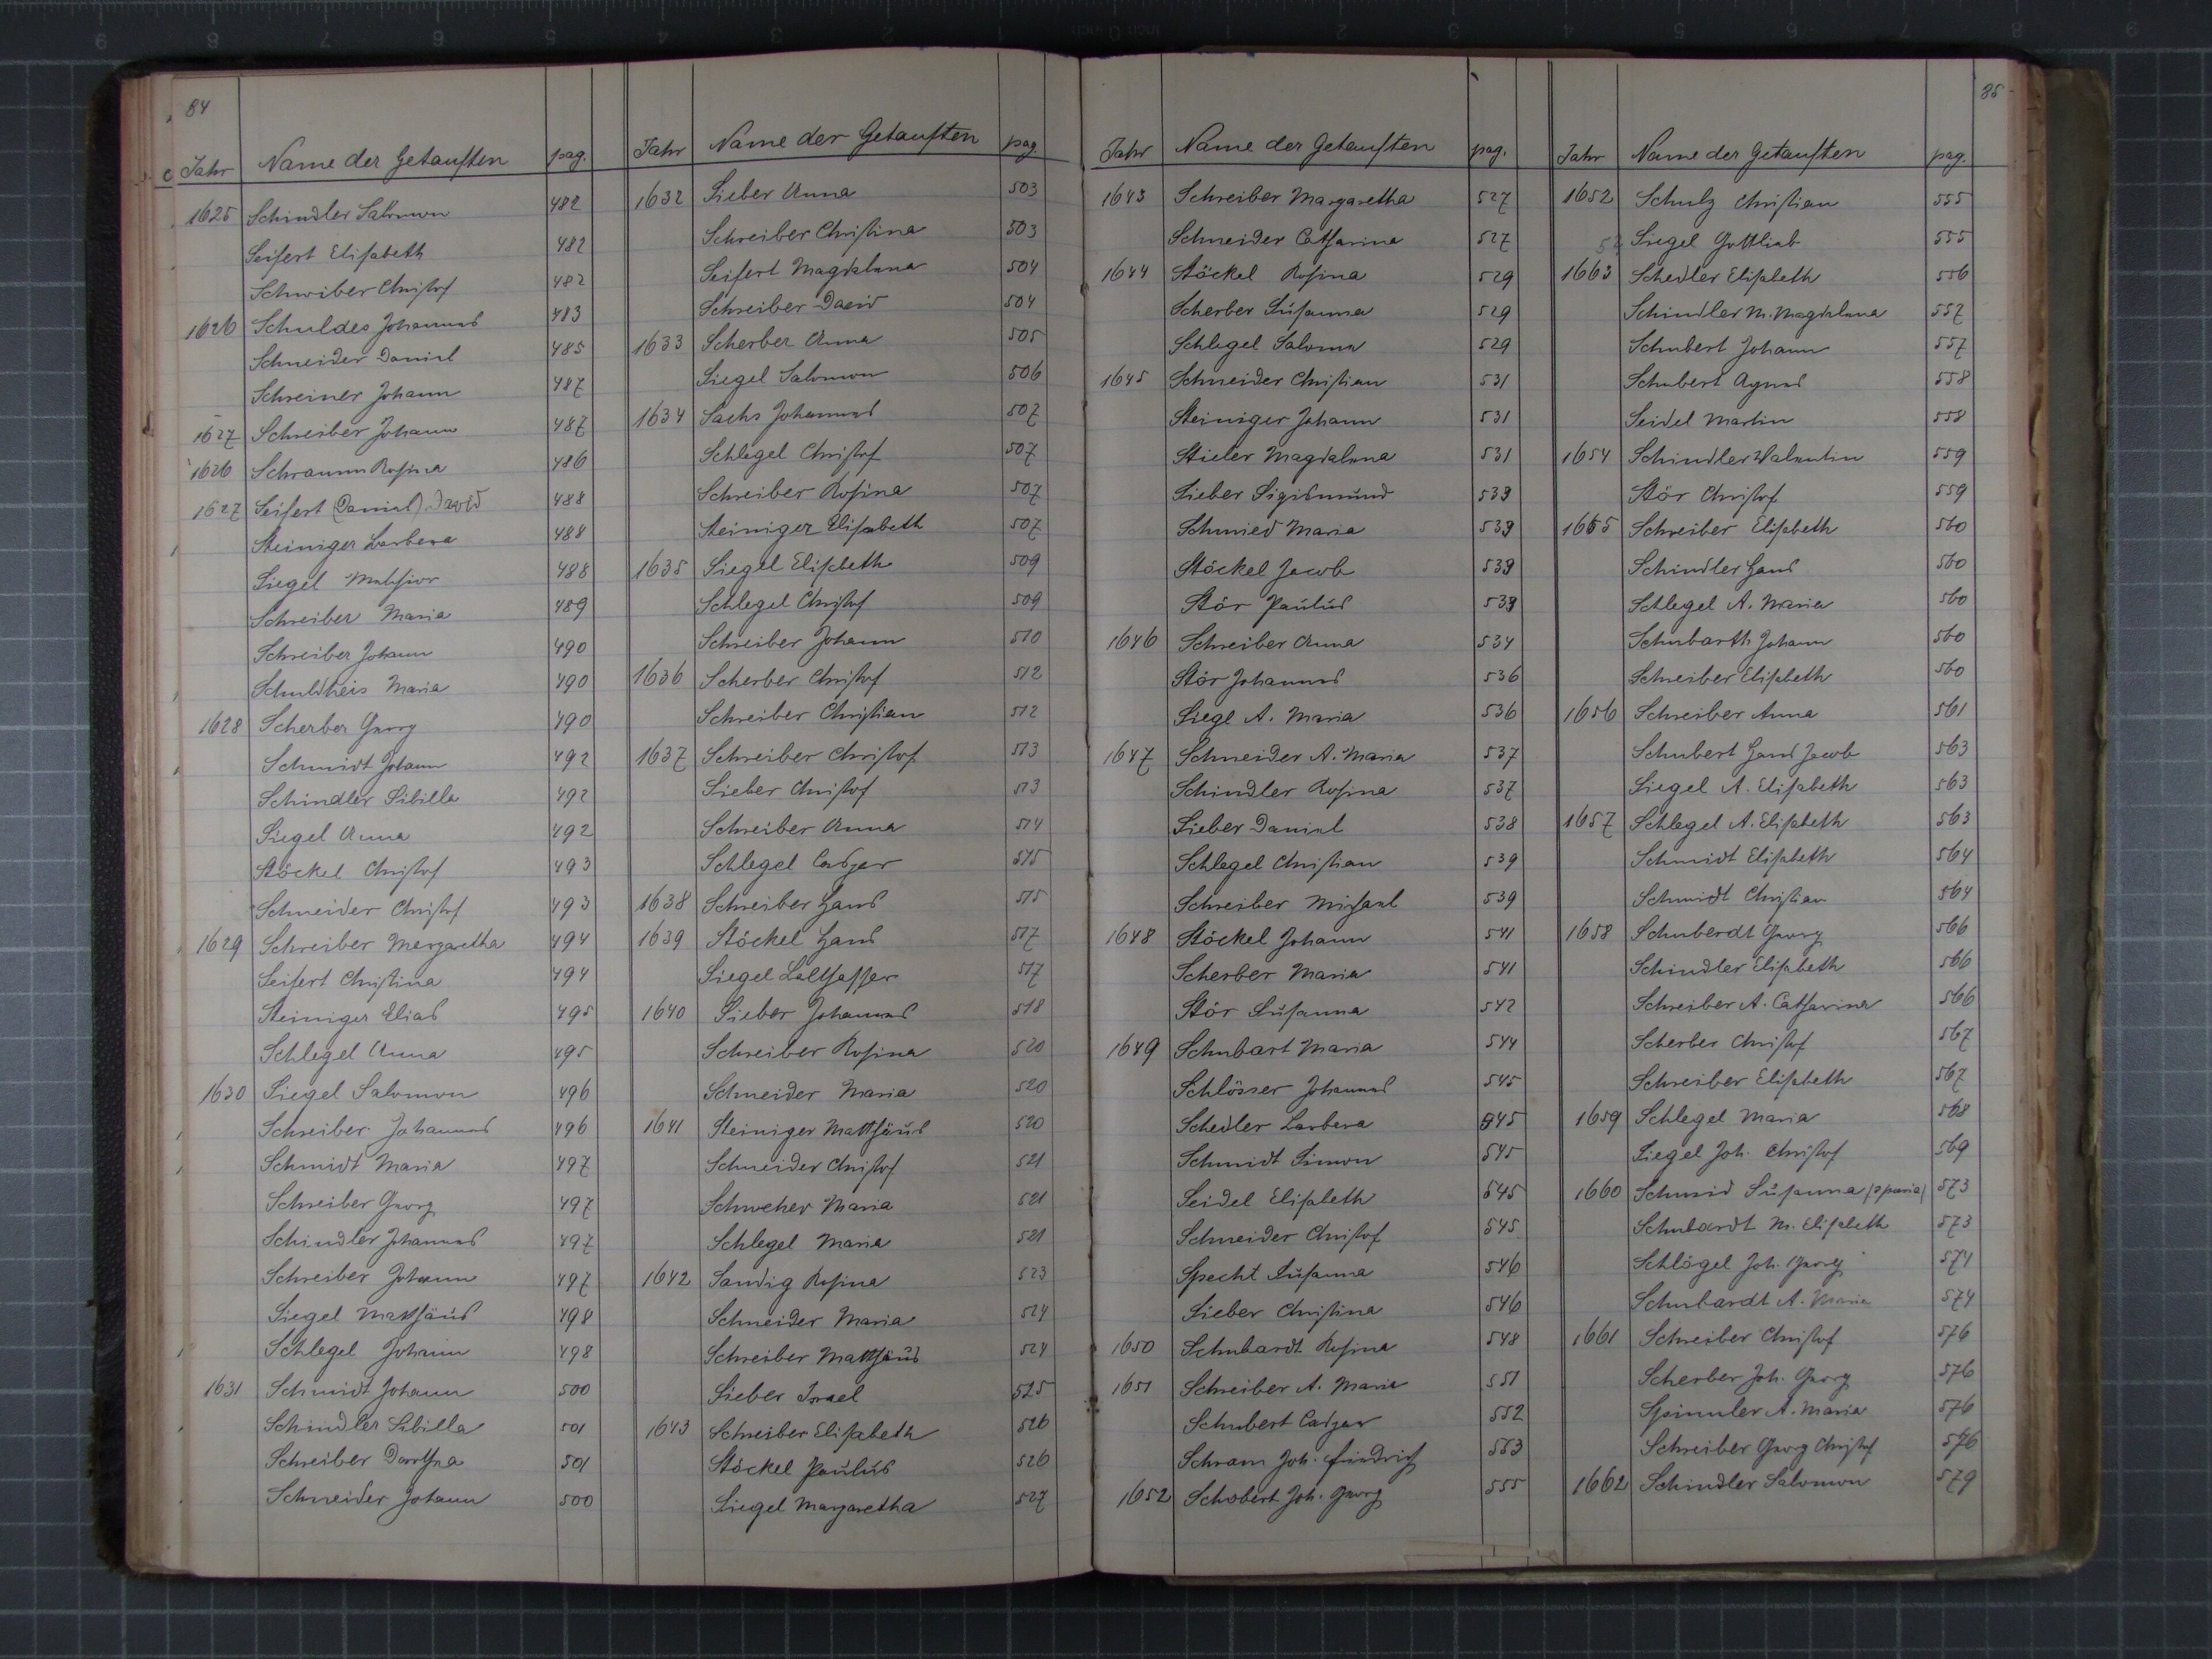 84
Jahr Name der Getauften pag.
1625 Schindler Salomon 482
Seifert Elisabeth 482
Schreiber Christof 482
1626 Schuldes Johannes 483
Schneider Daniel 485
Schreiner Johann 487
1627 Schreiber Johann 487
1626 Schramm Rosina 486
1627 Seifert (Daniel) David 488
Steiniger Barbara 488
Siegel 488
Schreiber Maria 489
Schreiber Johann 490
Schultheis Maria 490
1628 Scherber Georg 490
Schmidt Johann 492
Schindler Sibilla 492
Siegel Anna 492
Stöckel Christof 493
Schneider Christof 493
1629 Schreiber Margaretha 494
Seifert Christina 494
Steiniger Elias 495
Schlegel Anna 495
1630 Siegel Salomon 496
Schreiber Johannes 496
Schmidt Maria 497
Schreiber Georg 497
Schindler Johannes 497
Schreiber Johann 497
Siegel Matthäus 498
Schlegel Johann 498
1631 Schmidt Johann 500
Schindler Sibilla 501
Schreiber Dorothea 501
Schneider Johann 500
Jahr Name der Getauften pag
1632 Sieber Anna 503
Schreiber Christina 503
Seifert Magdalena 504
Schreiber David 504
1633 Scherber Anna 505
Siegel Salomon 506
1634 Sachs Johannes 507
Schlegel Christof 507
Schreiber Rosina 507
Steiniger Elisabeth 507
1635 Siegel Elisabeth 509
Schlegel Christof 509
Schreiber Johann 510
1636 Scherber Christof 512
Schreiber Christian 512
1637 Schreiber Christof 513
Sieber Christof 513
Schreiber Anna 514
Schlegel Caspar 515
1638 Schreiber Hans 515
1639 Stöckel Hans 517
Siegel Balthasser 517
1640 Sieber Johannes 518
Schreiber Rosina 520
Schneider Maria 520
1641 Steiniger Matthäus 520
Schneider Christof 521
Schweher Maria 521
Schlegel Maria 521
1642 Sandig Rosina 523
Schneider Maria 524
Schreiber Matthäus 524
Sieber Israel 525
1643 Schreiber Elisabeth 526
Stöckel Paulus 526
Siegel Margaretha 527
85
Jahr Name der Getauften pag.
1643 Schreiber Margaretha 527
Schneider Catharina 527
1644 Stöckel Rosina 529
Scherber Susanna 529
Schlegel Saloma 529
1645 Schneider Christian 531
Steiniger Johann 531
Stieler Magdalena 531
Sieber Sigismund 533
Schmied Maria 533
Stöckel Jacob 533
Stör Paulus 533
1646 Schreiber Anna 534
Stör Johannes 536
Siegl A. Maria 536
1647 Schneider A. Maria 537
Schindler Rosina 537
Sieber Daniel 538
Schlegel Christian 539
Schreiber Michael 539
1648 Stöckel Johann 541
Scherber Maria 541
Stör Susanna 542
1649 Schubart Maria 544
Schlösser Johannes 545
Schedler Barbara 545
Schmidt Simon 545
Seidel Elisabeth 545
Schneider Christof 545
Specht Susanna 546
Sieber Christina 546
1650 Schubardt Rosina 548
1651 Schreiber A. Maria 551
Schubert Caspar 552
Schram Joh. Friedrich 553
1652 Schobert Joh. Georg 555
Jahr Name der Getauften pag.
1652 Schulz Christian 555
52 Siegel Gottlieb 555
1663 Schedler Elisabeth 556
Schindler M. Magdalena 557
Schubert Johann 557
Schubert Agnes 558
Seidel Martin 558
1654 Schindler Valentin 559
Stör Christof 559
1655 Schreiber Elisabeth 560
Schindler Hans 560
Schlegel A. Maria 560
Schubarth Johann 560
Schreiber Elisabeth 560
1656 Schreiber Anna 561
Schubert Hans Jacob 563
Siegel A. Elisabeth 563
1657 Schlegel A. Elisabeth 563
Schmidt Elisabeth 564
Schmidt Christian 564
1658 Schuberdt Georg 566
Schindler Elisabeth 566
Schreiber A. Catharina 566
Scherber Christof 567
Schreiber Elisabeth 567
1659 Schlegel Maria 568
Siegel Joh. Christof 569
1660 Schmid Susanna (spuria) 573
Schubardt M. Elisabeth 573
Schlögel Joh. Georg 574
Schubardt A. Maria 574
1661 Schreiber Christof 576
Scherber Joh. Georg 576
Spinnler A. Maria 576
Schreiber Georg Christof 576
1662 Schindler Salomon 579